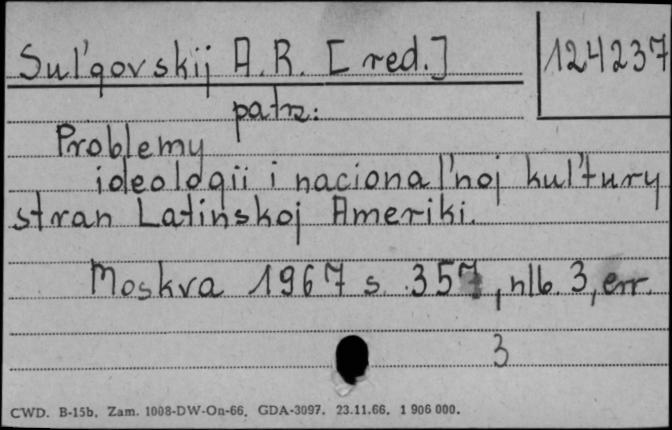 Sul'govskij A.R. [red.]
124237
patrz:
Problemy
ideologii i nacional'noj kul'tury
stran Latinskoj Ameriki.
Moskva 1967 s. 357, nlb. 3, err.
3
CWD. B-15b. Zam. 1008-DW-On-66. GDA-3097. 23.11.66. 1 906 000.